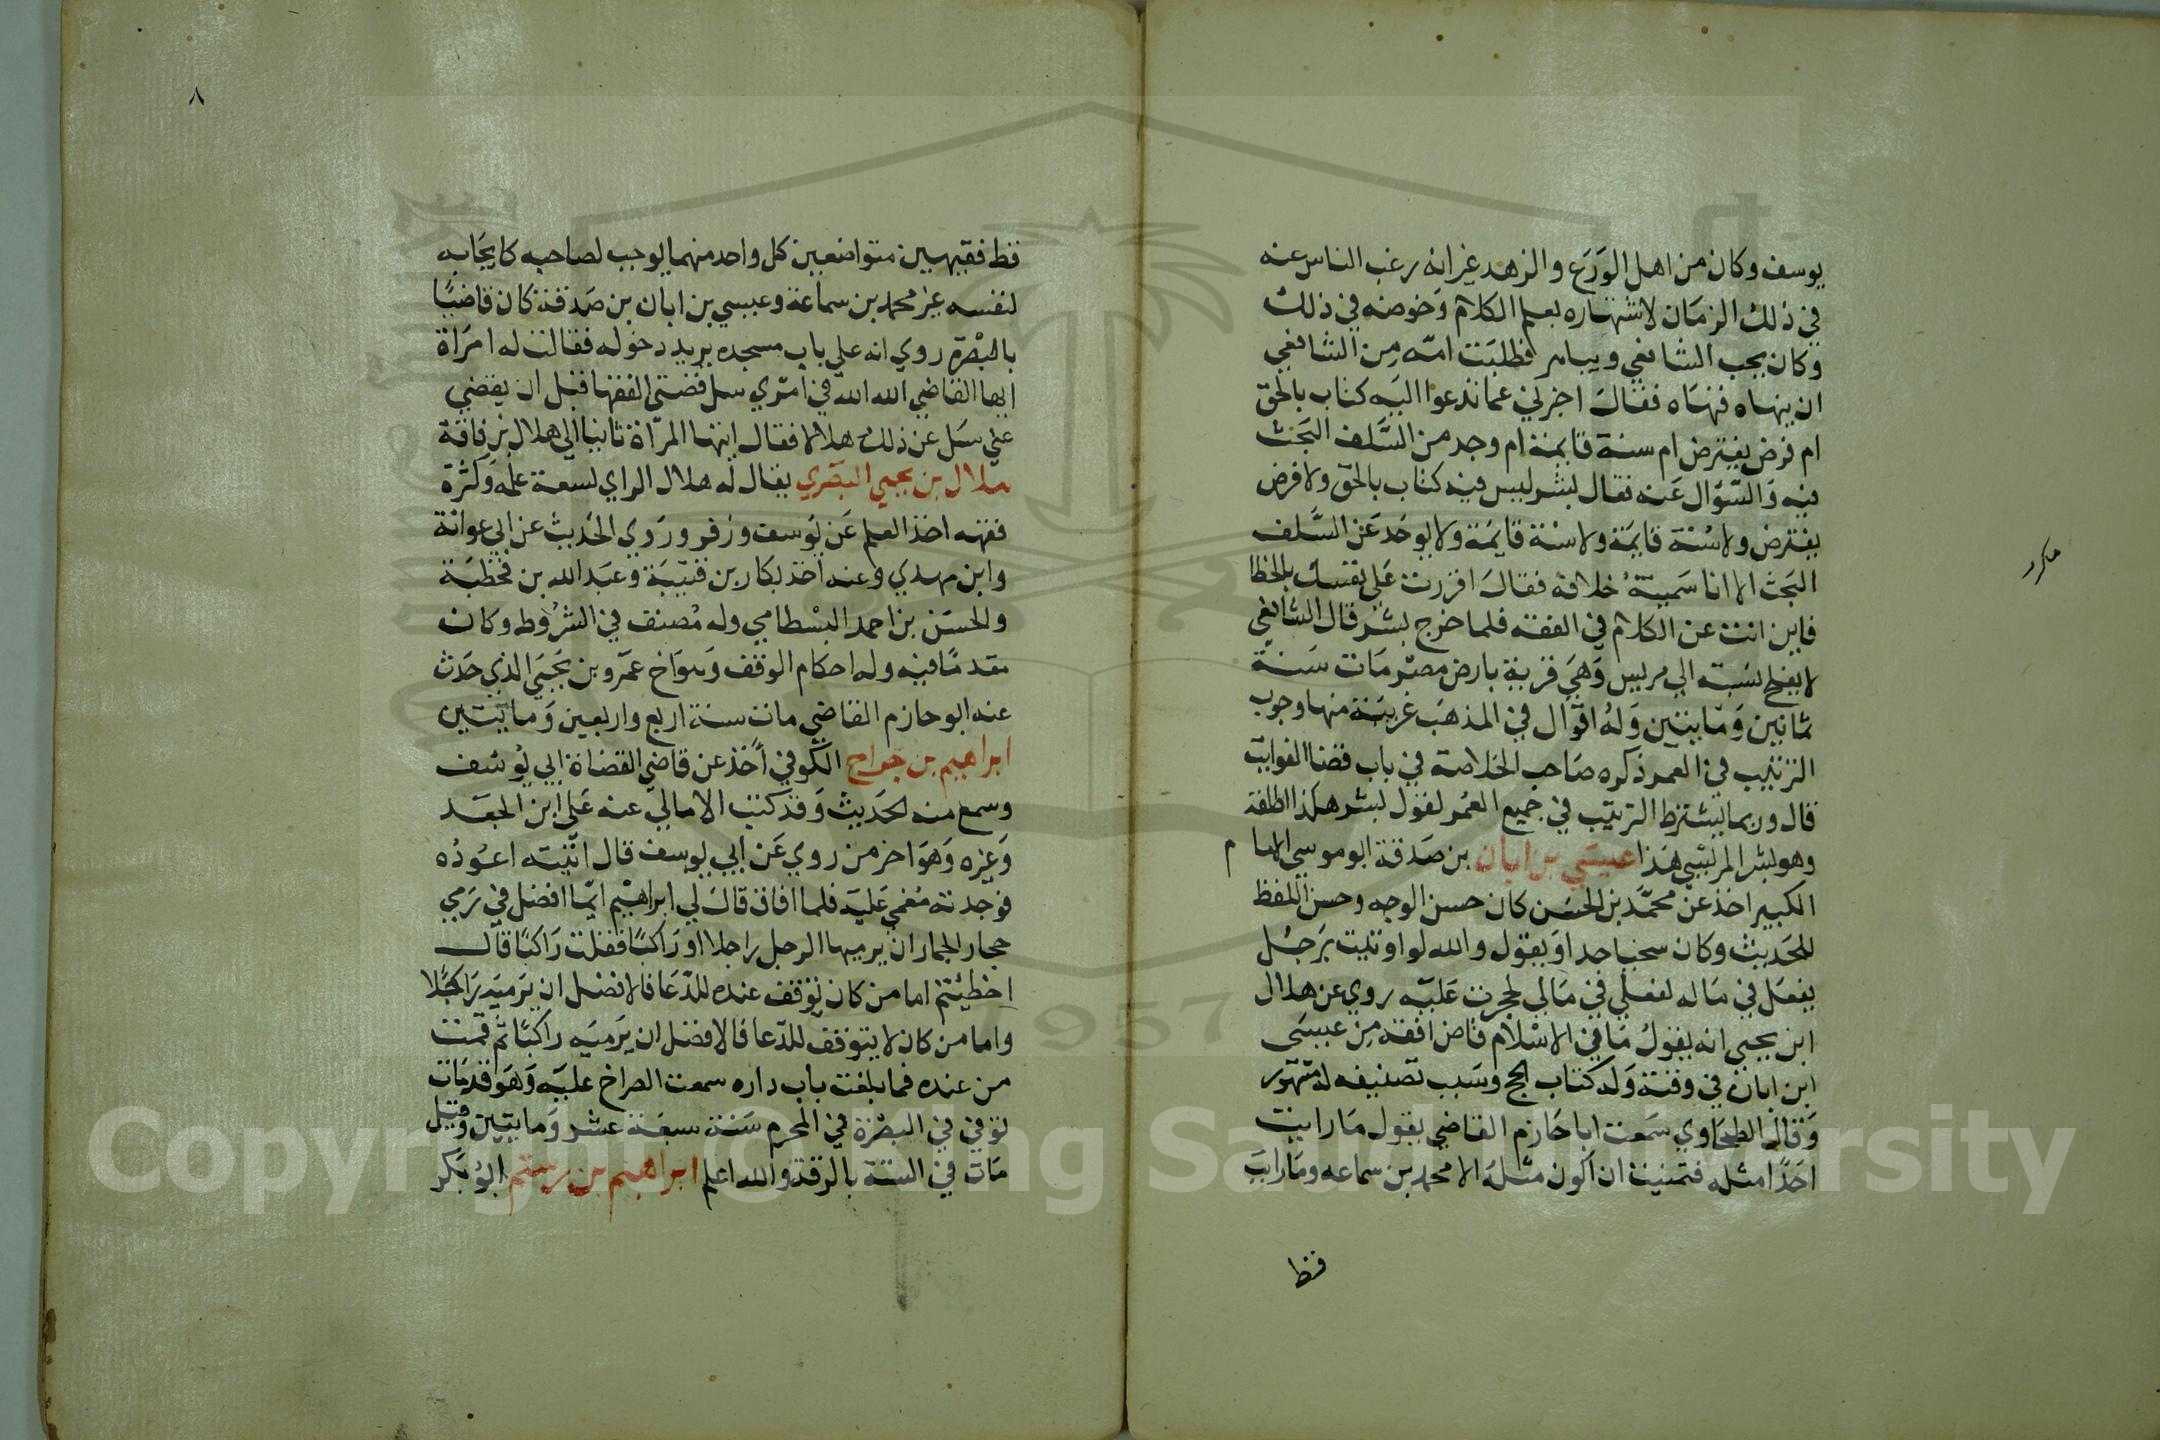 يوسف وكان من اهل الورع والزهد غير انه رغب الناس عنه
في ذلك الزمان لاشتهاره بعلم الكلام وخوضه في ذلك
وكان يجب الشافعي ويبامر فطلبت امه من الشافعي
ان ينهاه فنهاه فقال اخبرني عما تدعوا اليه كتاب بالحق
ام فرض يفترض ام سنة قايمة ام وجد من السلف البحث
فيه والسؤال عنه فقال بشر ليس فيه كتاب بالحق ولا فرض
يفترض ولا سنة قايمة ولا سنة قايمة ولا يوجد عن السلف
البحث الا انا سمية خلافه فقال اقررت على نفسك بالخطا
فاين انت عن الكلام في الفقه فلما خرج بشر قال الشافعي
لا يفلح نسبته الي مريس وهي قرية بارض مصر مات سنة
ثمانين ومايتين وله اقوال في المذهب غريبة منها وجوب
الترتيب في العمر ذكره صاحب الخلاصة في باب قضا الفوايت
قال وربما يشترط الترتيب في جميع العمر لقول بشر هكذا اطلقه
وهو بشر المريسي هذا عيسي بن ابان بن صدقة ابو موسي الاما م
الكبير اخذ عن محمد بن الحسن كان حسن الوجه وحسن اللفظ
للحديث وكان سخيا جدا ويقول والله لو اوتيت برجل
يفعل في ماله لفعلي في مالي لحجرت عليه روي عن هلال
ابن يحيي انه يقول ما في الاسلام قاض افقه من عيسى
ابن ابان في وقته وله كتاب الحج وسبب تصنيفه له مشهور
وقال الطحاوي سمعت ابا حازم القاضي يقول ما رايت
احدا مثله فتمنيت ان اكون مثله الا محمد بن سماعه وما رايت
قط
مكرر
٨
قط فقيهين متواضعين كل واحد منهما يوجب لصاحبه كايجابه
لنفسه غير محمد بن سماعة وعيسي بن ابان بن صدقة كان قاضيا
بالبصرة روي انه علي باب مسجده يريد دخوله فقالت له امراة
ايها القاضي الله الله في امري سل قضتي الفقها قبل ان يقضي
عني سل عن ذلك هلالا فقال ايتها المراة ثانيا الي هلال بن فاقة
هلال بن يحيي البصري يقال له هلال الراي لسعة علمه وكثرة
فقهه اخذ العلم عن يوسف وزفر وروي الحديث عن ابي عوانة
وابن مهدي وعنه اخذ بكار بن قتيبة وعبد الله بن قحطبة
والحسن بن احمد البسطامي وله مصنف في الشروط وكان
مقدما فيه وله احكام الوقف وهو اخ عمرو بن يحيي الذي حدث
عنه ابو حازم القاضي مات سنة اربع واربعين ومايتين
ابراهيم بن جراح الكوفي اخذ عن قاضي القضاة ابي يوسف
وسمع منه الحديث وقد كتب الامالي عنه علي ابن الجعد
وغيره وهو اخر من روي عن ابي يوسف قال اتيته اعوده
فوجدته مغمي عليه فلما افاق قال لي ابراهيم ايما افضل في رمي
حجار الجمار ان يرميها الرجل راجلا او راكبا فقلت راكبا قال
اخطيتم اما من كان يوقف عنده للدعا فالافضل ان يرميه راجلا
واما من كان لا يتوقف للدعا فالافضل ان يرميه راكبا ثم قمت
من عنده فما بلغت باب داره سمعت الصراخ عليه وهو قد مات
توفي في البصرة في المحرم سنة سبعة عشر ومايتين وقيل
مات في السنة بالرقة والله اعلم ابراهيم بن رستم ابو بكر
Copyright © King Saud University
1957